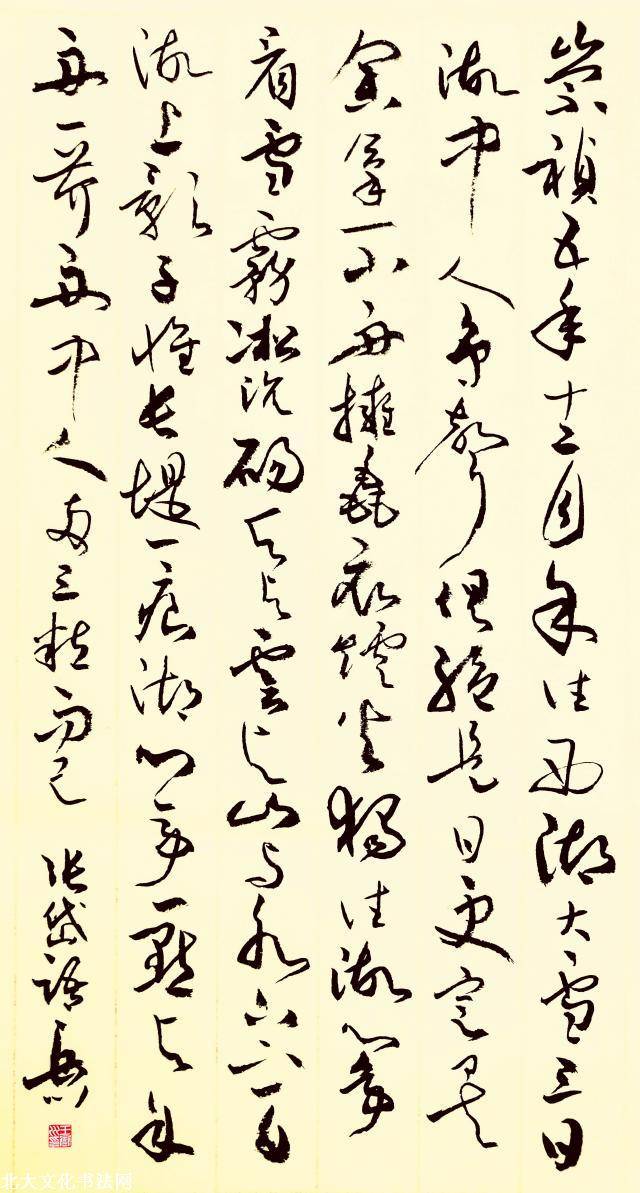 崇禎五年十二月余住西湖大雪三日
湖中人鳥聲俱絕是日更定矣
余拏一小舟擁毳衣爐火獨往湖心亭
看雪霧凇沆碭天與雲與山與水上下一白
湖上影子惟長堤一痕湖心亭一點與余
舟一芥舟中人兩三粒而已 張岱語
北大文化书法网